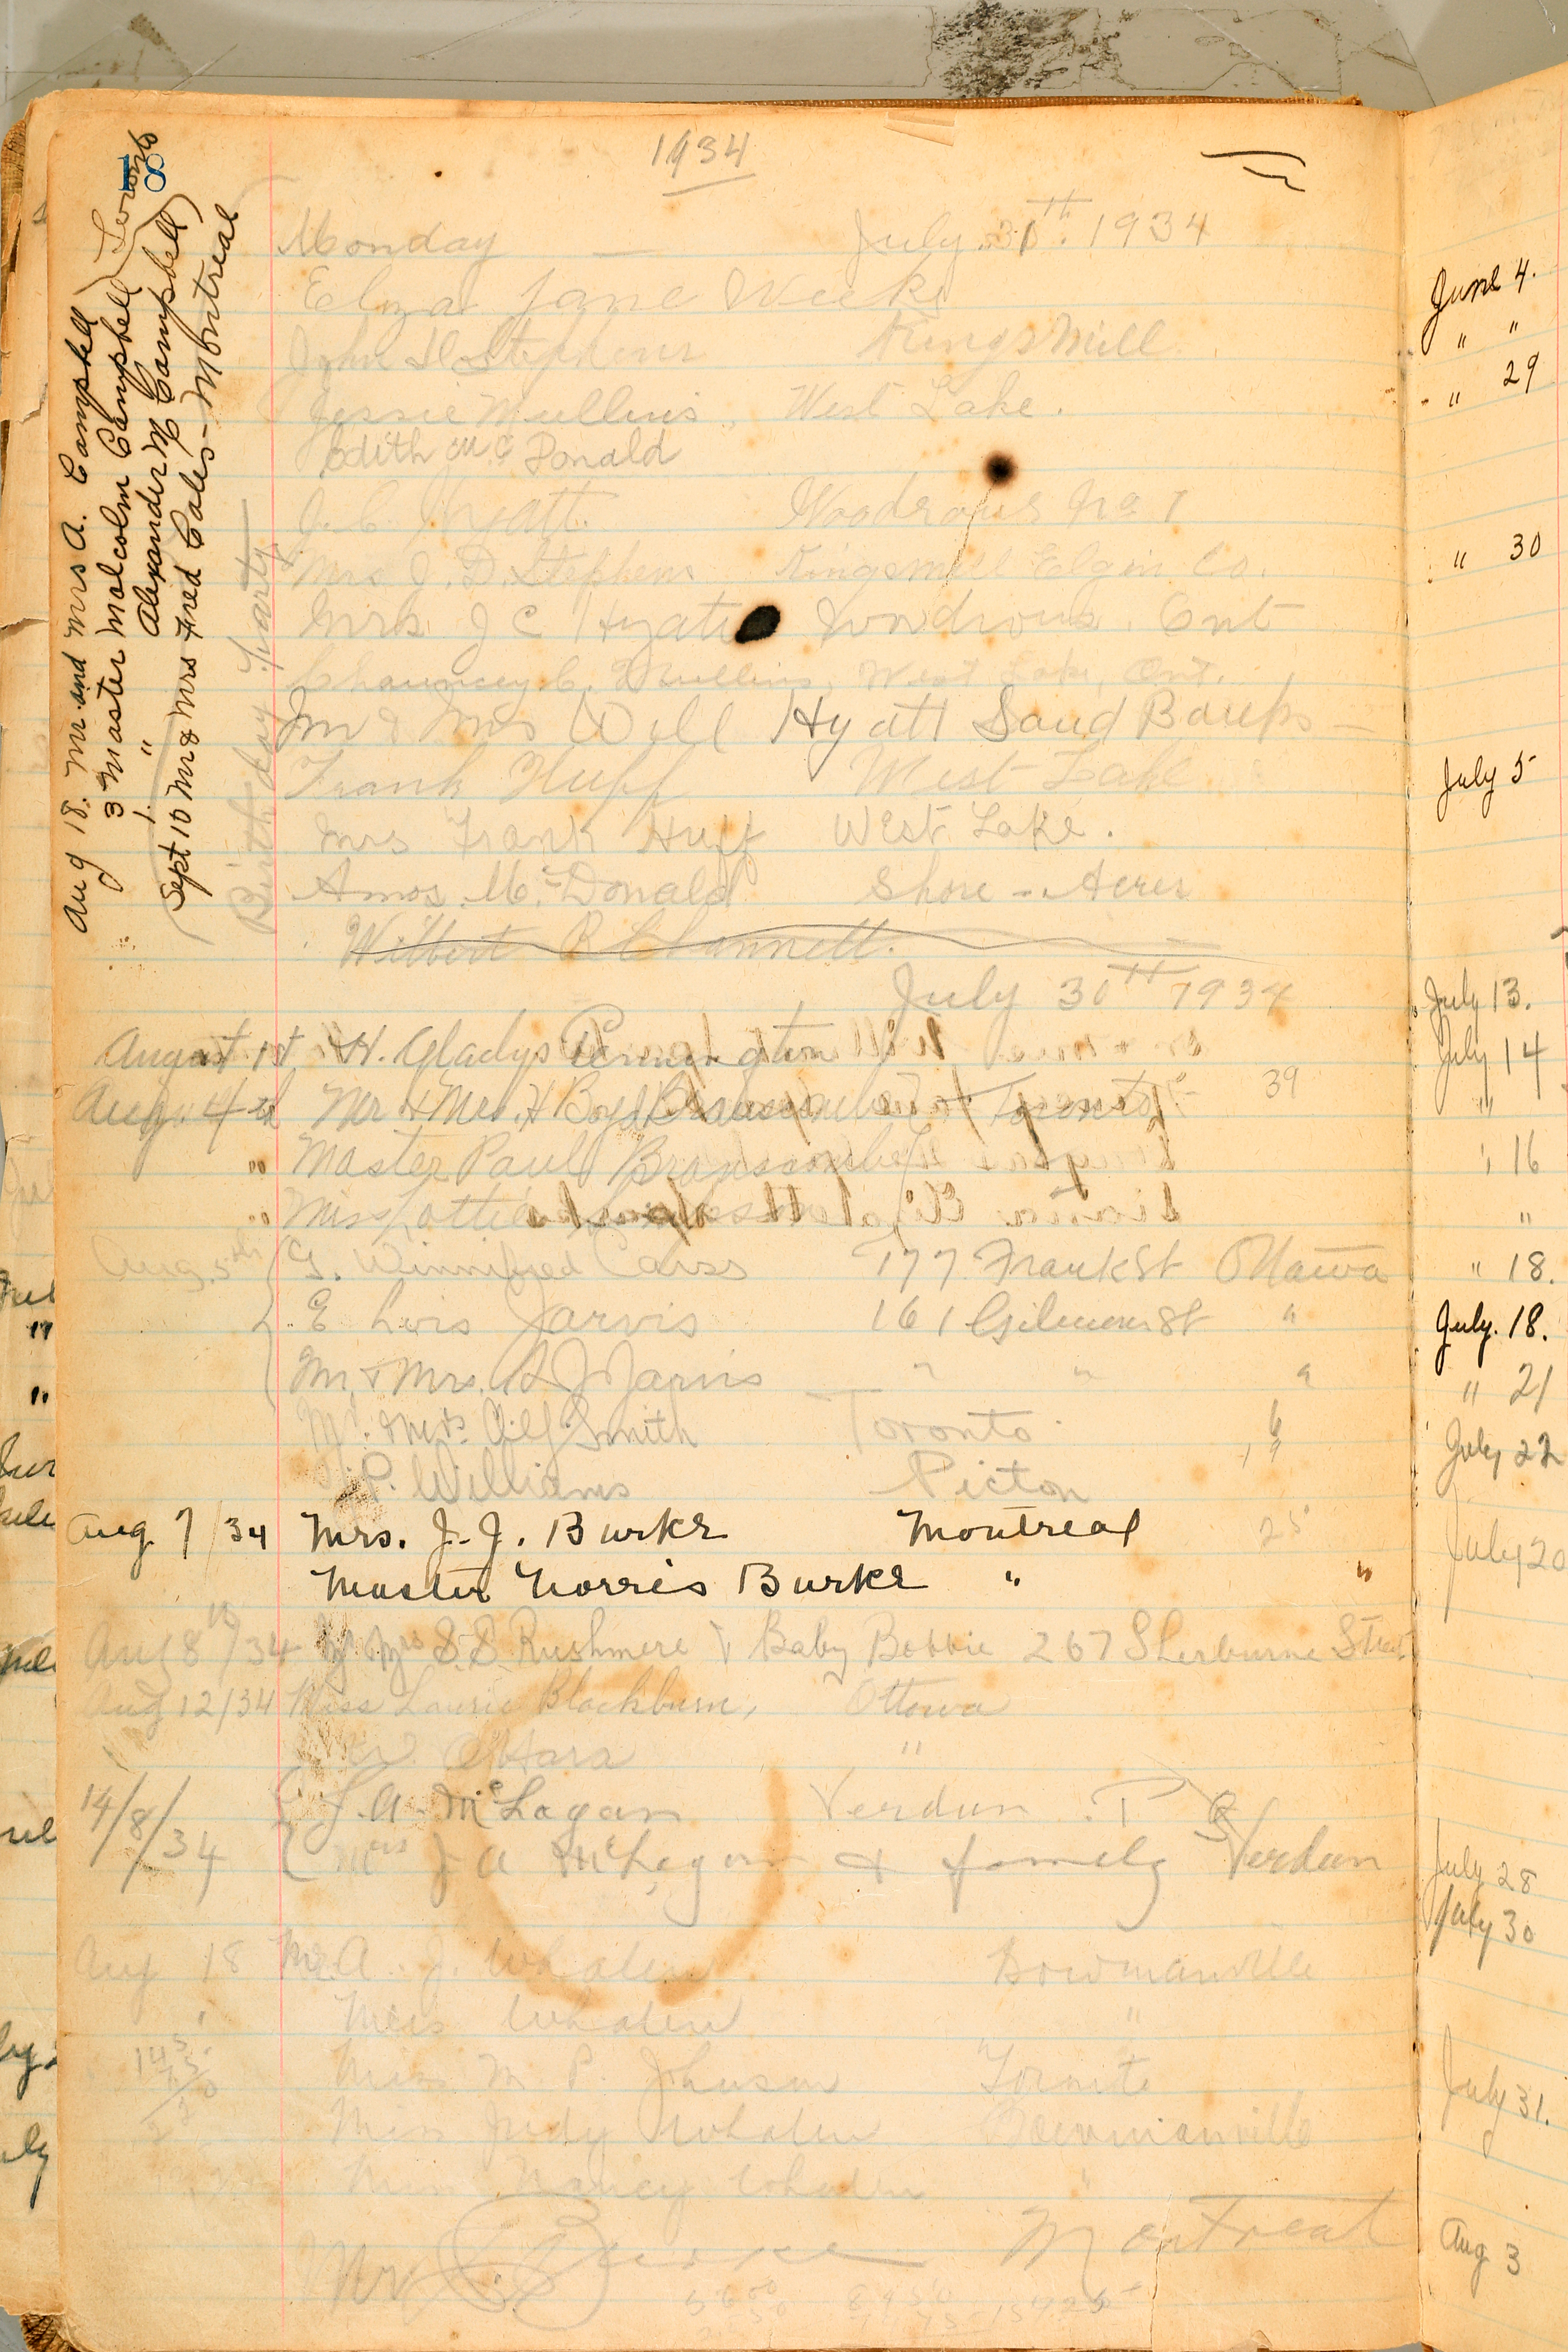 1934
18
Aug 18. Mr and Mrs A. Campbell
3 Master Malcolm Campbell Toronto
1. " Alexander M Campbell
Sept 10 Mr & Mrs Fred Cales - Montreal
Birthday Party
Monday — July 30th. 1934
Eliza Jane Weeks
John D Stephens Kingsmill
Jessie Mullins, West Lake.
Edith McDonald
J. C. Hyatt. Woodrous No 1
Mrs J. D. Stephens Kingsmill Elgin Co.
Mrs J C Hyatt Wondrous. Ont
Chauncey C. Mullins, West Lake, Ont.
Mr & Mrs Will Hyatt Sand Banks
Frank Huff West Lake
Mrs Frank Huff West Lake.
Amos McDonald Shore - Acres
Wilbert R Channell.
July 30TH 1934
August 1st. H. Gladys Pennington
Aug. 4th Mr & Mrs. H Boyd Branscombe Toronto 39
" Master Paul Branscombe
" Miss Lottie
Aug. 5th G. Winnifred Carss 177 Frank St Ottawa
E Lois Jarvis 161 Gilmour St "
Mr & Mrs. A J Jarvis " " "
Mr. & Mrs. Alf. Smith Toronto 6
P. Williams Picton
Aug 7/34 Mrs. J. J. Burke Montreal 25
Master Norris Burke " "
Aug 8th/34 Mrs S. S Rushmere & Baby Bobbie 267 Sherburne Street
Aug 12/34 Miss Laurie Blackburn, Ottawa
W. O'Hara "
14/8/34 J. A. McLagan Verdun. P Q
Mrs J A McLagan & family Verdun
Aug 18 Mr. A. J. Whalen Bowmanville
Mrs Whalen "
Miss M. P. Johnson Toronto
Miss Judy Whalen Bowmanville
Miss Nancy Whalen "
Mr Burke Montreal
June 4.
" "
" 29
" 30
July 5
July 13.
July 14
"
" 16
"
" 18.
July. 18.
" 21
July 22
July 20
July 28
July 30
July 31.
Aug 3